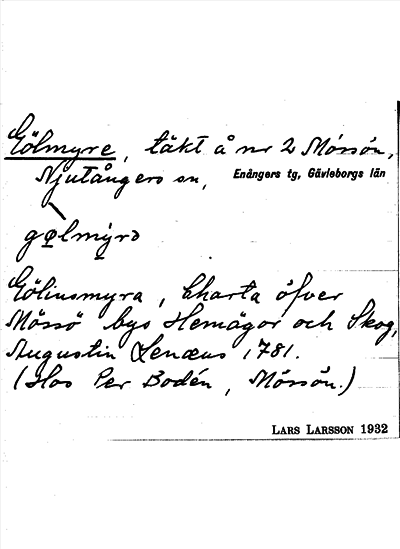 Gölmyre, täkt å nr 2 Mössön,
Njutångers sn, Enångers tg, Gävleborgs län
gølmyrə
Göliusmyra, Charta öfver
Mössö bys Hemägor och Skog,
Augustin Lenæus 1781.
(Hos Per Bodén, Mössön.)
LARS LARSSON 1932